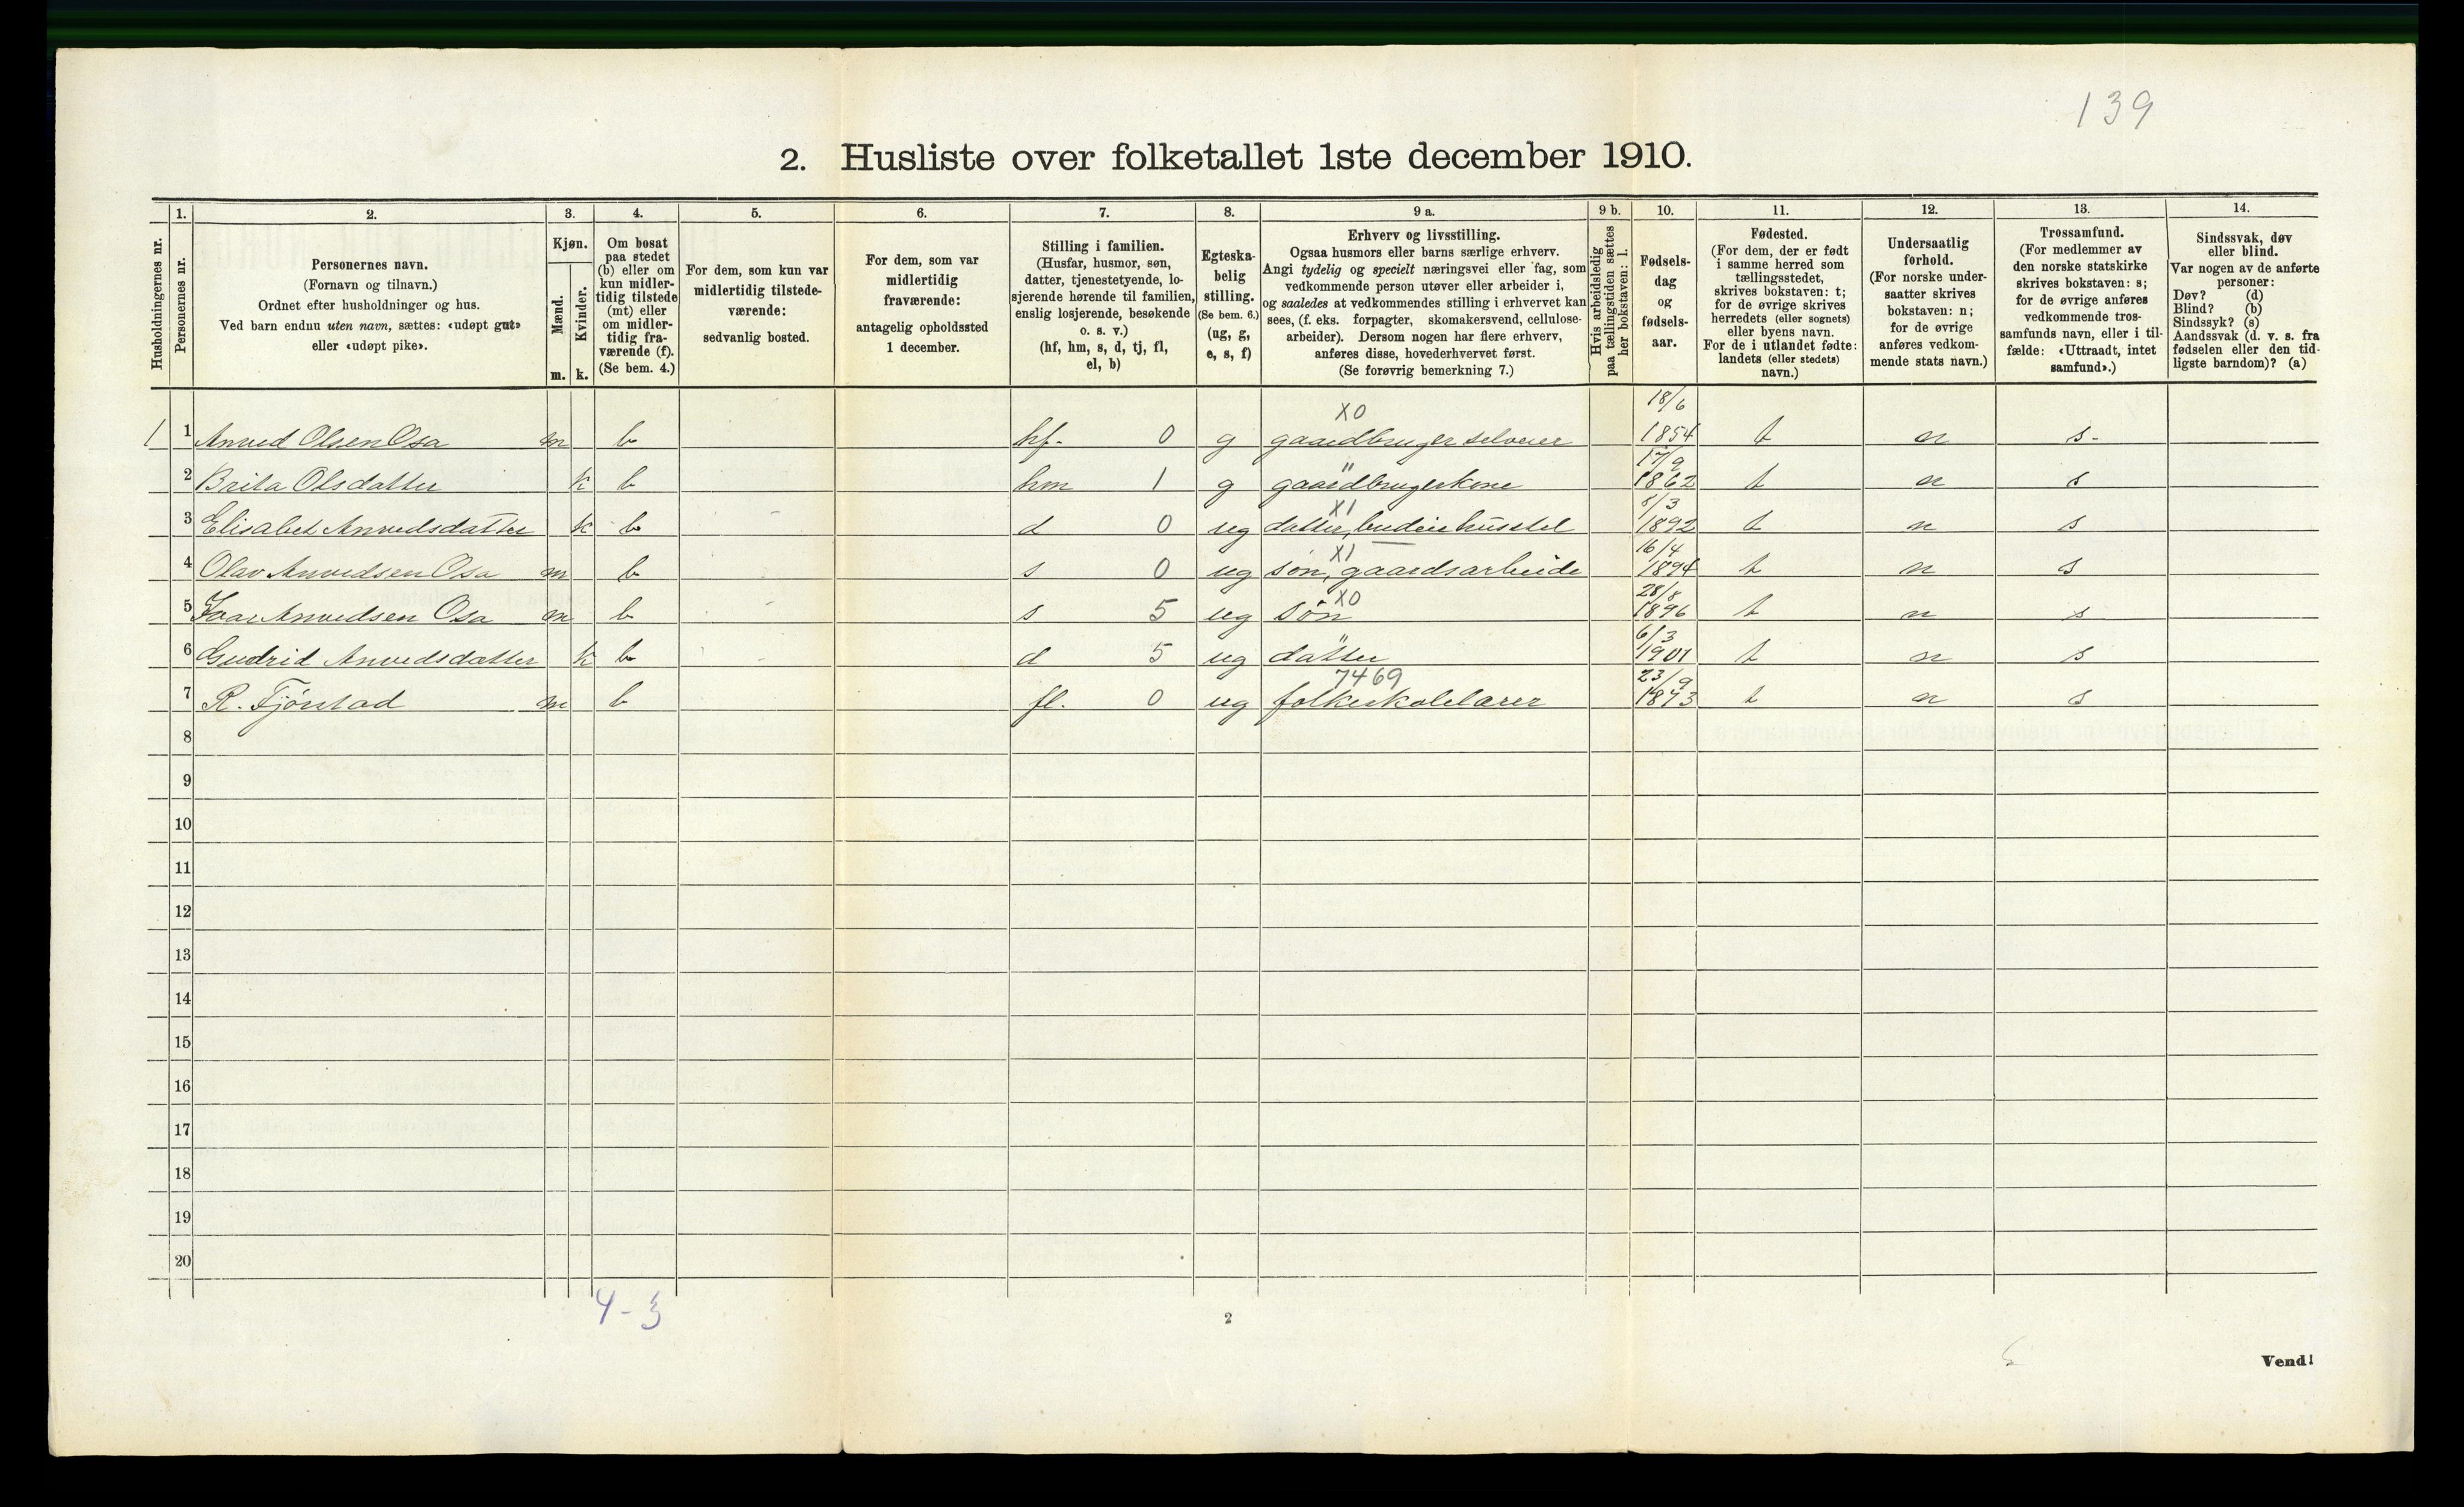 139
2. Husliste over folketallet 1ste december 1910.
Husholdningernes nr.
1. Personernes nr.
2. Personernes navn.
(Fornavn og tilnavn.)
Ordnet efter husholdninger og hus.
Ved barn endnu uten navn, sættes: «udøpt gut»
eller «udøpt pike».
3. Kjøn.
Mænd. m.
Kvinder. k.
4. Om bosat
paa stedet
(b) eller om
kun midler-
tidig tilstede
(mt) eller
om midler-
tidig fra-
værende (f).
(Se bem. 4.)
5. For dem, som kun var
midlertidig tilstede-
værende:
sedvanlig bosted.
6. For dem, som var
midlertidig
fraværende:
antagelig opholdssted
1 december.
7. Stilling i familien.
(Husfar, husmor, søn,
datter, tjenestetyende, lo-
sjerende hørende til familien,
enslig losjerende, besøkende
o. s. v.)
(hf, hm, s, d, tj, fl,
el, b)
8. Egteska-
belig
stilling.
(Se bem. 6.)
(ug, g,
e, s, f)
9 a. Erhverv og livsstilling.
Ogsaa husmors eller barns særlige erhverv.
Angi tydelig og specielt næringsvei eller fag, som
vedkommende person utøver eller arbeider i,
og saaledes at vedkommendes stilling i erhvervet kan
sees, (f. eks. forpagter, skomakersvend, cellulose-
arbeider). Dersom nogen har flere erhverv,
anføres disse, hovederhvervet først.
(Se forøvrig bemerkning 7.)
9 b. Hvis arbeidsledig
paa tællingstiden sættes
her bokstaven: l.
10. Fødsels-
dag
og
fødsels-
aar.
11. Fødested.
(For dem, der er født
i samme herred som
tællingsstedet,
skrives bokstaven: t;
for de øvrige skrives
herredets (eller sognets)
eller byens navn.
For de i utlandet fødte:
landets (eller stedets)
navn.)
12. Undersaatlig
forhold.
(For norske under-
saatter skrives
bokstaven: n;
for de øvrige
anføres vedkom-
mende stats navn.)
13. Trossamfund.
(For medlemmer av
den norske statskirke
skrives bokstaven: s;
for de øvrige anføres
vedkommende tros-
samfunds navn, eller i til-
fælde: «Uttraadt, intet
samfund».)
14. Sindssvak, døv
eller blind.
Var nogen av de anførte
personer:
Døv? (d)
Blind? (b)
Sindssyk? (s)
Aandssvak (d. v. s. fra
fødselen eller den tid-
ligste barndom)? (a)
X0 18/6
1 1 Anved Olsen Osa m b hf. 0 g gaardbruger selveier 1854 t n s-
" 17/9
2 Brita Olsdatter k b hm 1 g gaardbrugerkone 1862 t n s
X1 8/3
3 Elisabet Anvedsdatter k b d 0 ug datter, budeie husstel 1892 t n s
X1 16/4
4 Olav Anvedsen Osa m b s 0 ug søn, gaardsarbeide 1894 t n s
X0 28/8
5 Ivar Anvedsen Osa m b s 5 ug søn 1896 t n s
" 6/3
6 Gudrid Anvedsdatter k b d 5 ug datter 1901 t n s
7469 23/9
7 R. Fjørstad m b fl. 0 ug folkeskolelærer 1873 t n s
8
9
10
11
12
13
14
15
16
17
18
19
20
4-3
2
Vend!